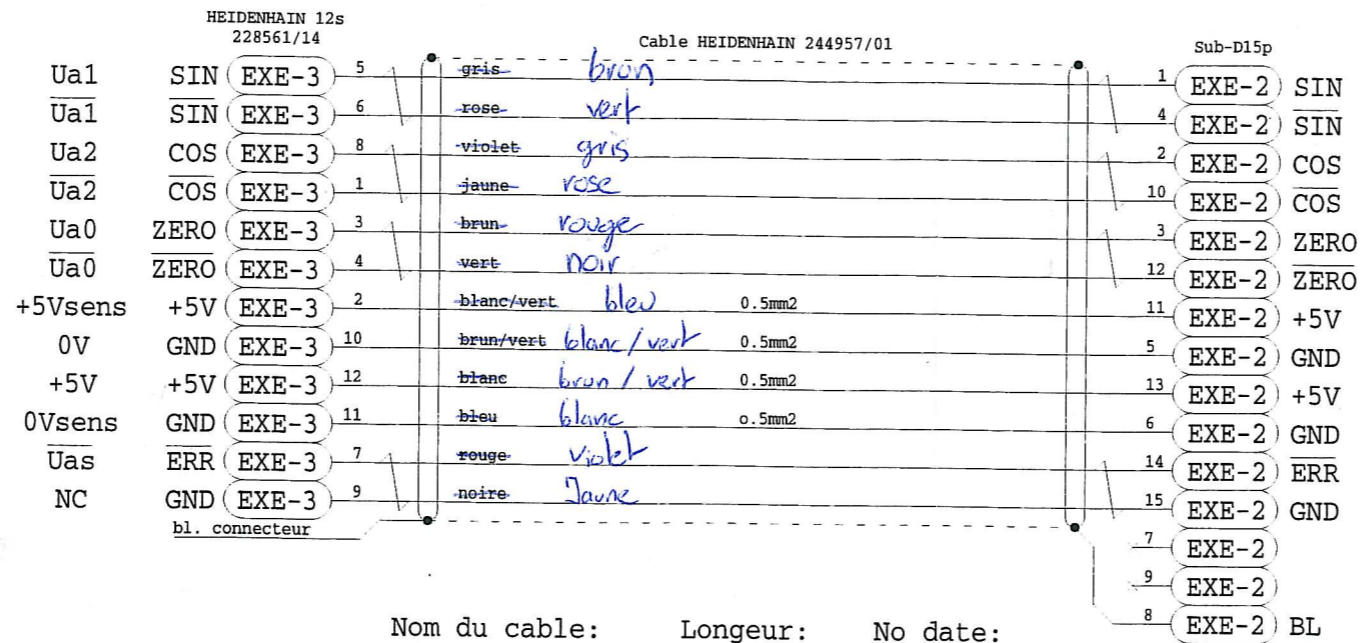 HEIDENHAIN 12s
228561/14
Cable HEIDENHAIN 244957/01
Sub-D15p
Ua1 SIN EXE-3 5 gris bron 1 EXE-2 SIN
Ua1 SIN EXE-3 6 rose vert 4 EXE-2 SIN
Ua2 COS EXE-3 8 violet gris 2 EXE-2 COS
Ua2 COS EXE-3 1 jaune rose 10 EXE-2 COS
Ua0 ZERO EXE-3 3 brun rouge 3 EXE-2 ZERO
Ua0 ZERO EXE-3 4 vert noir 12 EXE-2 ZERO
+5Vsens +5V EXE-3 2 blanc/vert bleu 0.5mm2 11 EXE-2 +5V
0V GND EXE-3 10 brun/vert blanc/vert 0.5mm2 5 EXE-2 GND
+5V +5V EXE-3 12 blanc brun / vert 0.5mm2 13 EXE-2 +5V
0Vsens GND EXE-3 11 bleu blanc o.5mm2 6 EXE-2 GND
Uas ERR EXE-3 7 rouge violet 14 EXE-2 ERR
NC GND EXE-3 9 noire Jaune 15 EXE-2 GND
bl. connecteur
7 EXE-2
9 EXE-2
8 EXE-2 BL
Nom du cable: Longeur: No date: